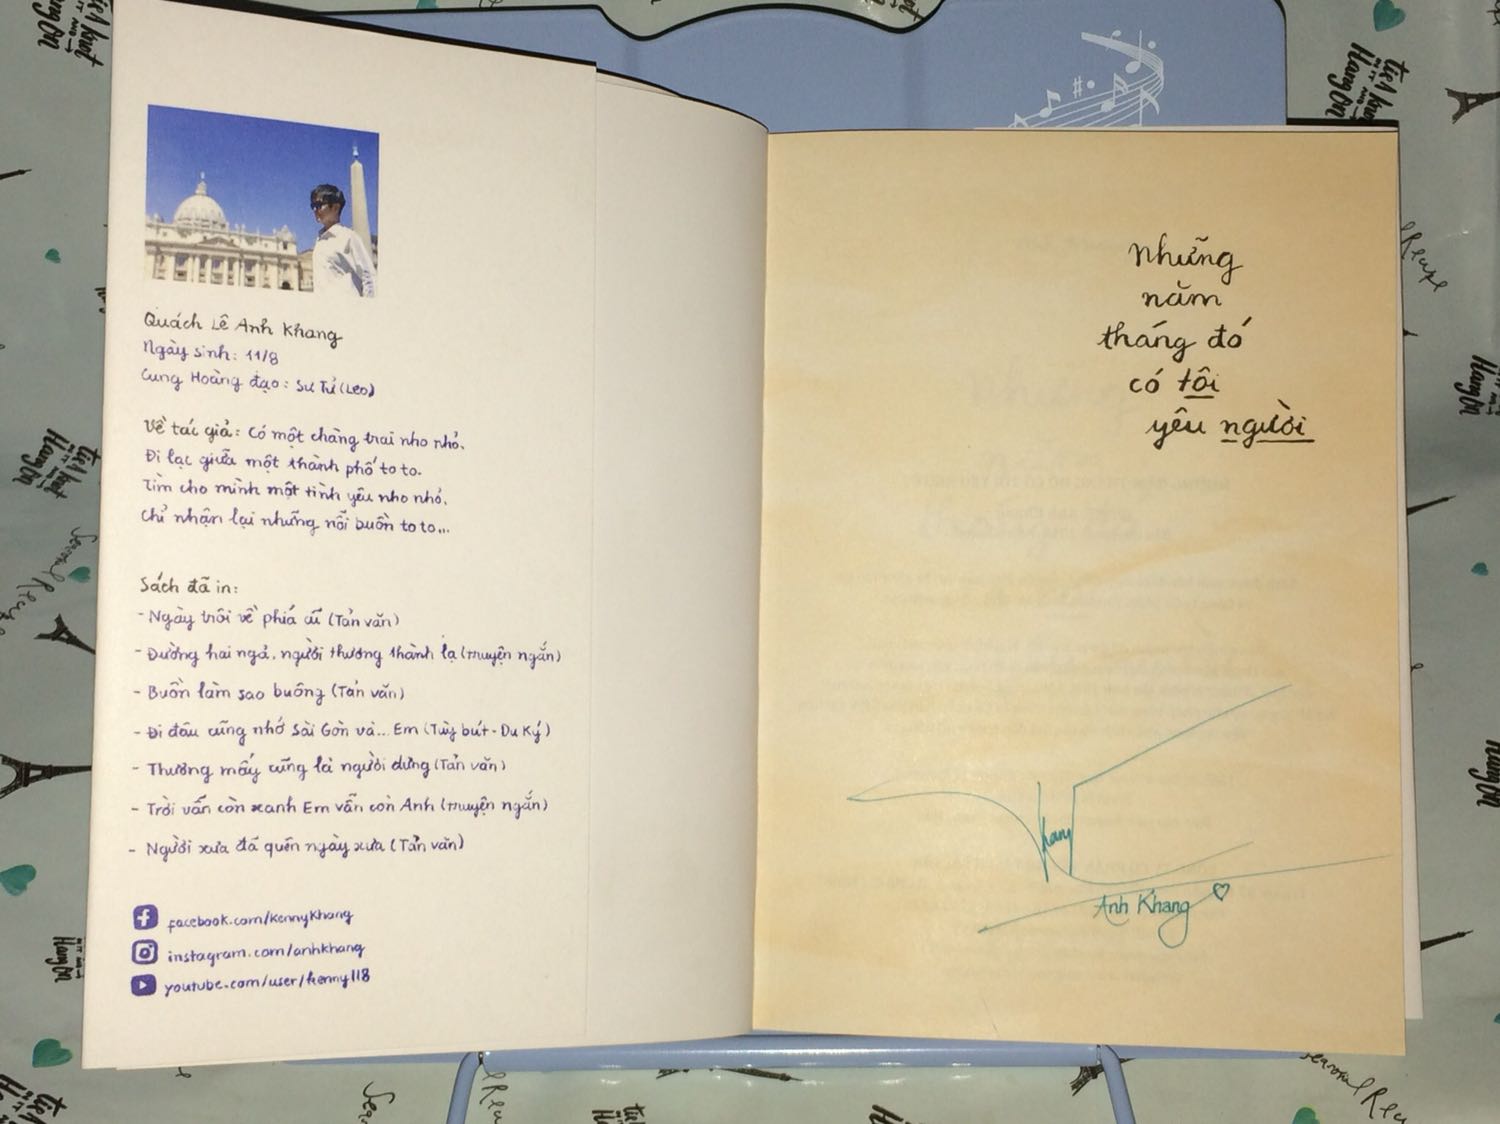 Quách Lê Anh Khang
Ngày sinh: 11/8
Cung Hoàng đạo: Sư Tử (Leo)
Về tác giả: Có một chàng trai nho nhỏ.
Đi lạc giữa một thành phố to to.
Tìm cho mình một tình yêu nho nhỏ.
Chỉ nhận lại những nỗi buồn to to...
Sách đã in:
- Ngày trôi về phía cũ (Tản văn)
- Đường hai ngả, người thương thành lạ (truyện ngắn)
- Buồn làm sao buông (Tản văn)
- Đi đâu cũng nhớ Sài Gòn và... Em (Tùy bút - Du Ký)
- Thương mấy cũng là người dưng (Tản văn)
- Trời vẫn còn xanh Em vẫn còn Anh (truyện ngắn)
- Người xưa đã quên ngày xưa (Tản văn)
facebook.com/kennykhang
instagram.com/anhkhang
youtube.com/user/kenny118
những
năm
tháng đó
có tôi
yêu người
Khang
Anh Khang